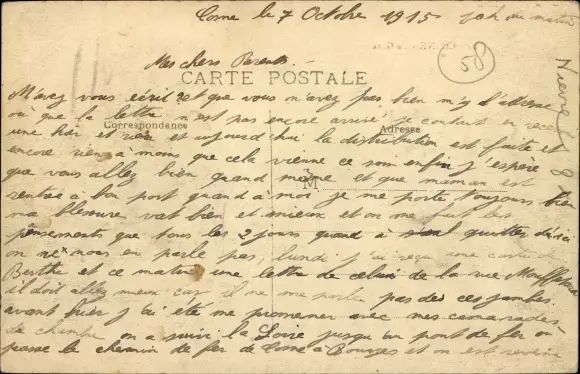 Cosne le 7 Octobre 1915 10h du matin
58
Nièvre
Mes chers Parents
CARTE POSTALE
M'avez vous écrit? et que vous n'avez pas bien mis l'adresse
où que la lettre n'est pas encore arrivé, je comptait en recevoir
Correspondance
Adresse
une hier et rien et aujourd'hui la distribution est faite et
encore rien a moins que cela vienne ce soir enfin j'espère
que vous allez bien quand même et que maman est
M
rentrée a bon port quand à moi je me porte toujours bien
ma blessure vat bien et mieux et on me fait les
pensements que tous les 2 jours quand à quitter d'ici
on ne nous en parle pas, lundi j'ai reçu une carte de
Berthe et ce matin une lettre de celui de la rue Mouffetard
il doit allez mieux car il ne me parle pas de ces jambes.
avant hier j'ai été me promener avec mes camarades
de chambre on a suivi la Loire jusqu'au pont de fer ou
passe le chemin de fer de Cosne à Bourges et on est revenu